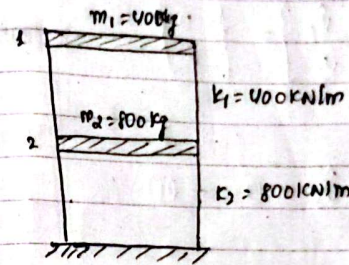 m₁=400kg
1
K₁=400KN/m
m₂=800kg
2
K₂=800KN/m